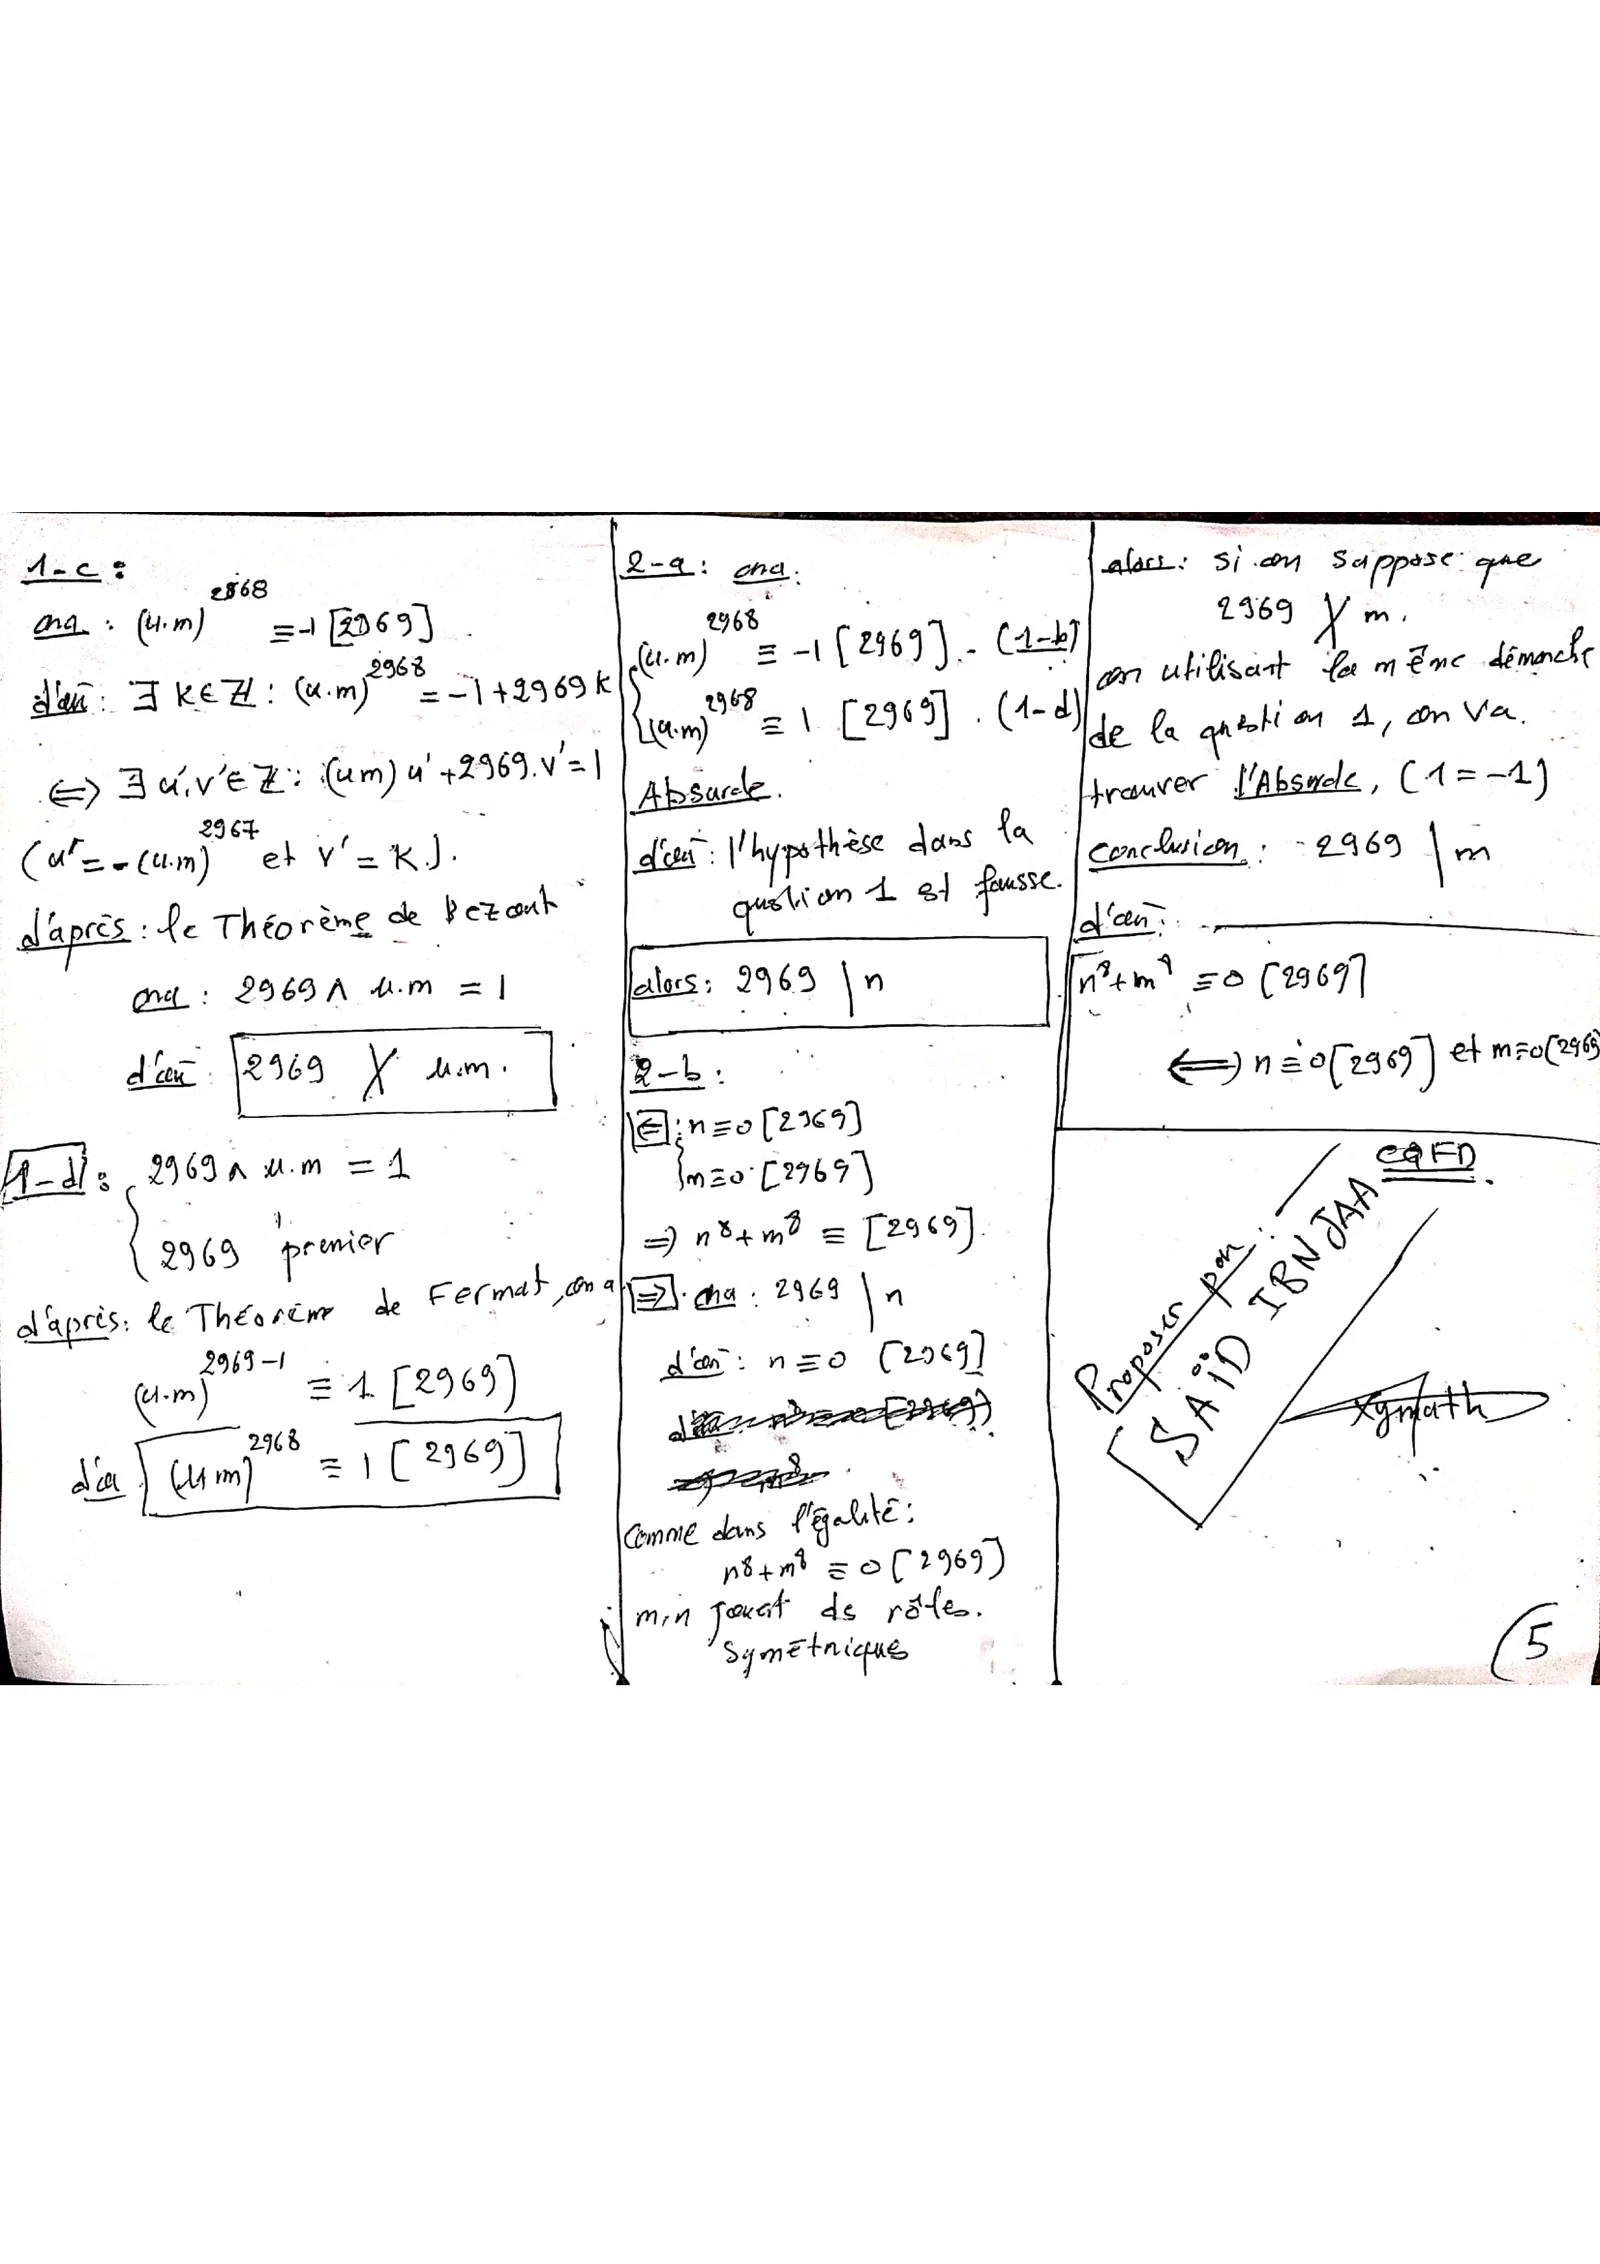 1-c :
ona : (u.m)^2968 ≡ -1 [2969]
d'où : ∃ k ∈ ℤ : (u.m)^2968 = -1 + 2969 k
⟺ ∃ u', v' ∈ ℤ : (um) u' + 2969. v' = 1
(u' = -(u.m)^2967 et v' = k).
d'après : le Théorème de Bezout
ona : 2969 ∧ u.m = 1
d'où : 2969 ∤ u.m.
1-d : 2969 ∧ u.m = 1
2969 premier
d'après : le Théorème de Fermat, on a
(u.m)^2969-1 ≡ 1 [2969]
d'où (u m)^2968 ≡ 1 [2969]
2-a : ona :
(u.m)^2968 ≡ -1 [2969]. (1-b)
(u.m)^2968 ≡ 1 [2969]. (1-d)
Absurde.
d'où : l'hypothèse dans la
qustion 1 est fausse.
alors : 2969 | n
2-b :
⇐ : n ≡ 0 [2969]
m ≡ 0 [2969]
⇒ n^8 + m^8 ≡ [2969].
⇒ . ona : 2969 | n
d'où : n ≡ 0 [2969]
Comme dans l'égalité :
n^8 + m^8 ≡ 0 [2969]
m, n jouent ds rôles.
Symétriques
alors : si on suppose que
2969 ∤ m.
on utilisant la même démarche
de la question 1, on va.
trouver l'Absurde, (1 = -1)
Conclusion : 2969 | m
d'où :
n^8 + m^8 ≡ 0 [2969]
⟺ n ≡ 0 [2969] et m ≡ 0 [2969]
CQFD.
Proposer par :
SAÏD IBN JAA
xymath
5